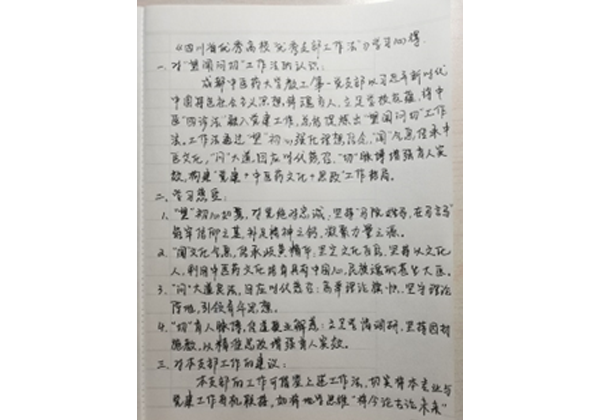 “四川省优秀高校优秀支部工作法”力学习心得.
一、对“望闻问切”工作法的认识:
成都中医药大学教工第一党支部以习近平新时代
中国特色社会主义思想铸魂育人,立足学校底蕴,将中
医“四诊法”融入党建工作,总结提炼出“望闻问切”工作
法。工作法通过“望”初心强化理想信念,“闻”气息传承中
医文化,“问”大道回应时代需要,“切”脉搏增强育人实
效,构建“党建+中医药文化+思政”工作格局。
二、学习感受:
1、“望”初心如磐,对党绝对忠诚,坚持
牢牢信仰之基,补足精神之钙,凝聚力量之源。
2.“闻”文化气息,传承岐黄精华,坚定文化自信,坚持以文化
人,利用中医药文化培育具有中国心、民族魂的苍生大医。
3.“问”大道良法,回应时代需要:高举理论旗帜,坚守理论
阵地,引领青年思想。
4.“切”育人脉搏,解惑:立足学情调研,坚持因材
施教,以精准思政增强育人实效。
三、对本支部工作的建议:
本支部的工作可借鉴上述工作法,切实将本专业与
党建工作有机联接,如将地学思维“将今论古论未来”